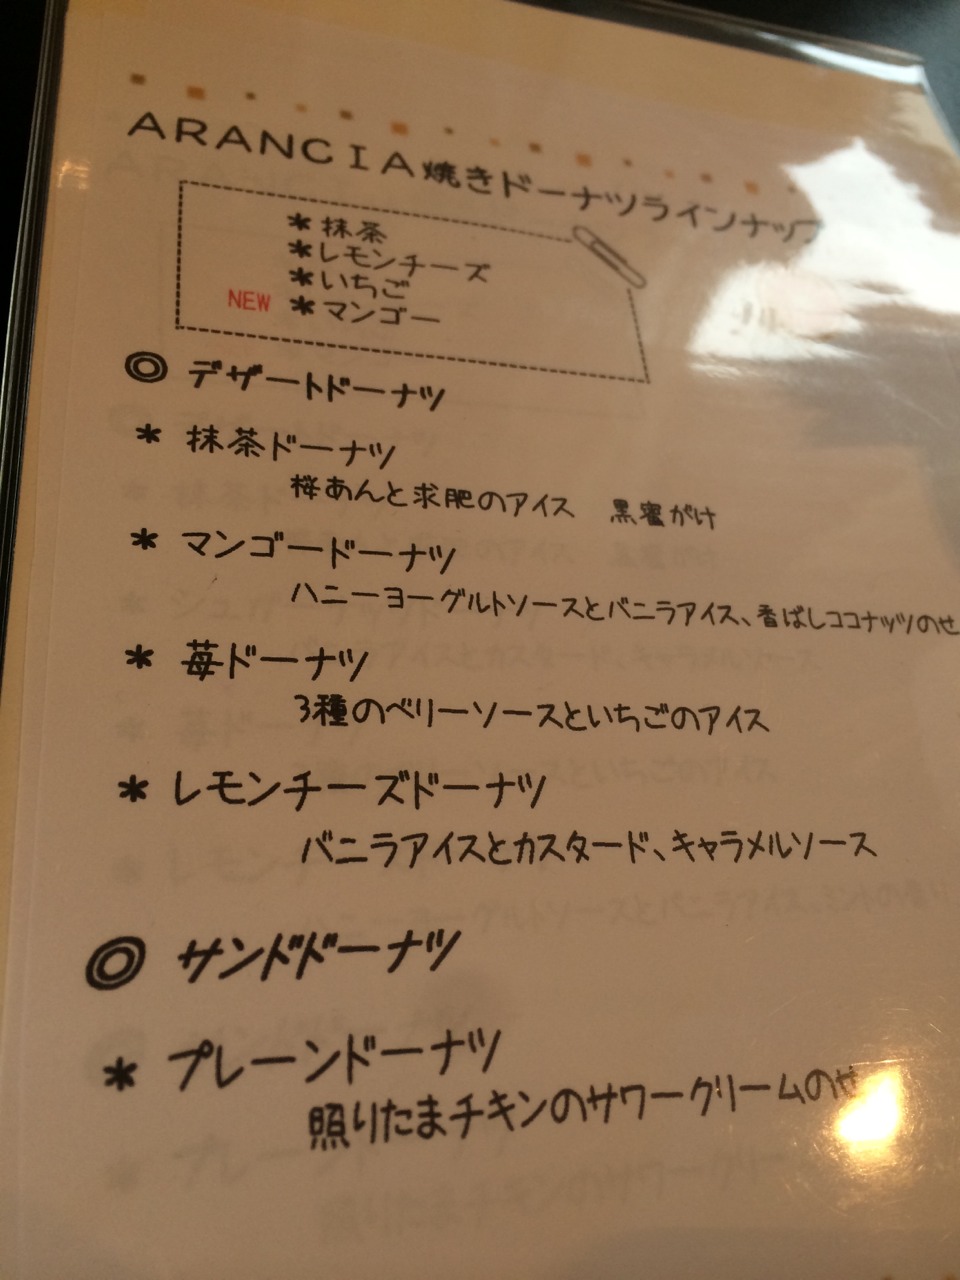 ARANCIA焼きドーナツラインナップ
*抹茶
*レモンチーズ
*いちご
NEW *マンゴー
◎ デザートドーナツ
* 抹茶ドーナツ
桜あんと求肥のアイス 黒蜜がけ
* マンゴードーナツ
ハニーヨーグルトソースとバニラアイス、香ばしココナッツのせ
* 苺ドーナツ
3種のベリーソースといちごのアイス
* レモンチーズドーナツ
バニラアイスとカスタード、キャラメルソース
◎ サンドドーナツ
* プレーンドーナツ
照りたまチキンのサワークリームのせ